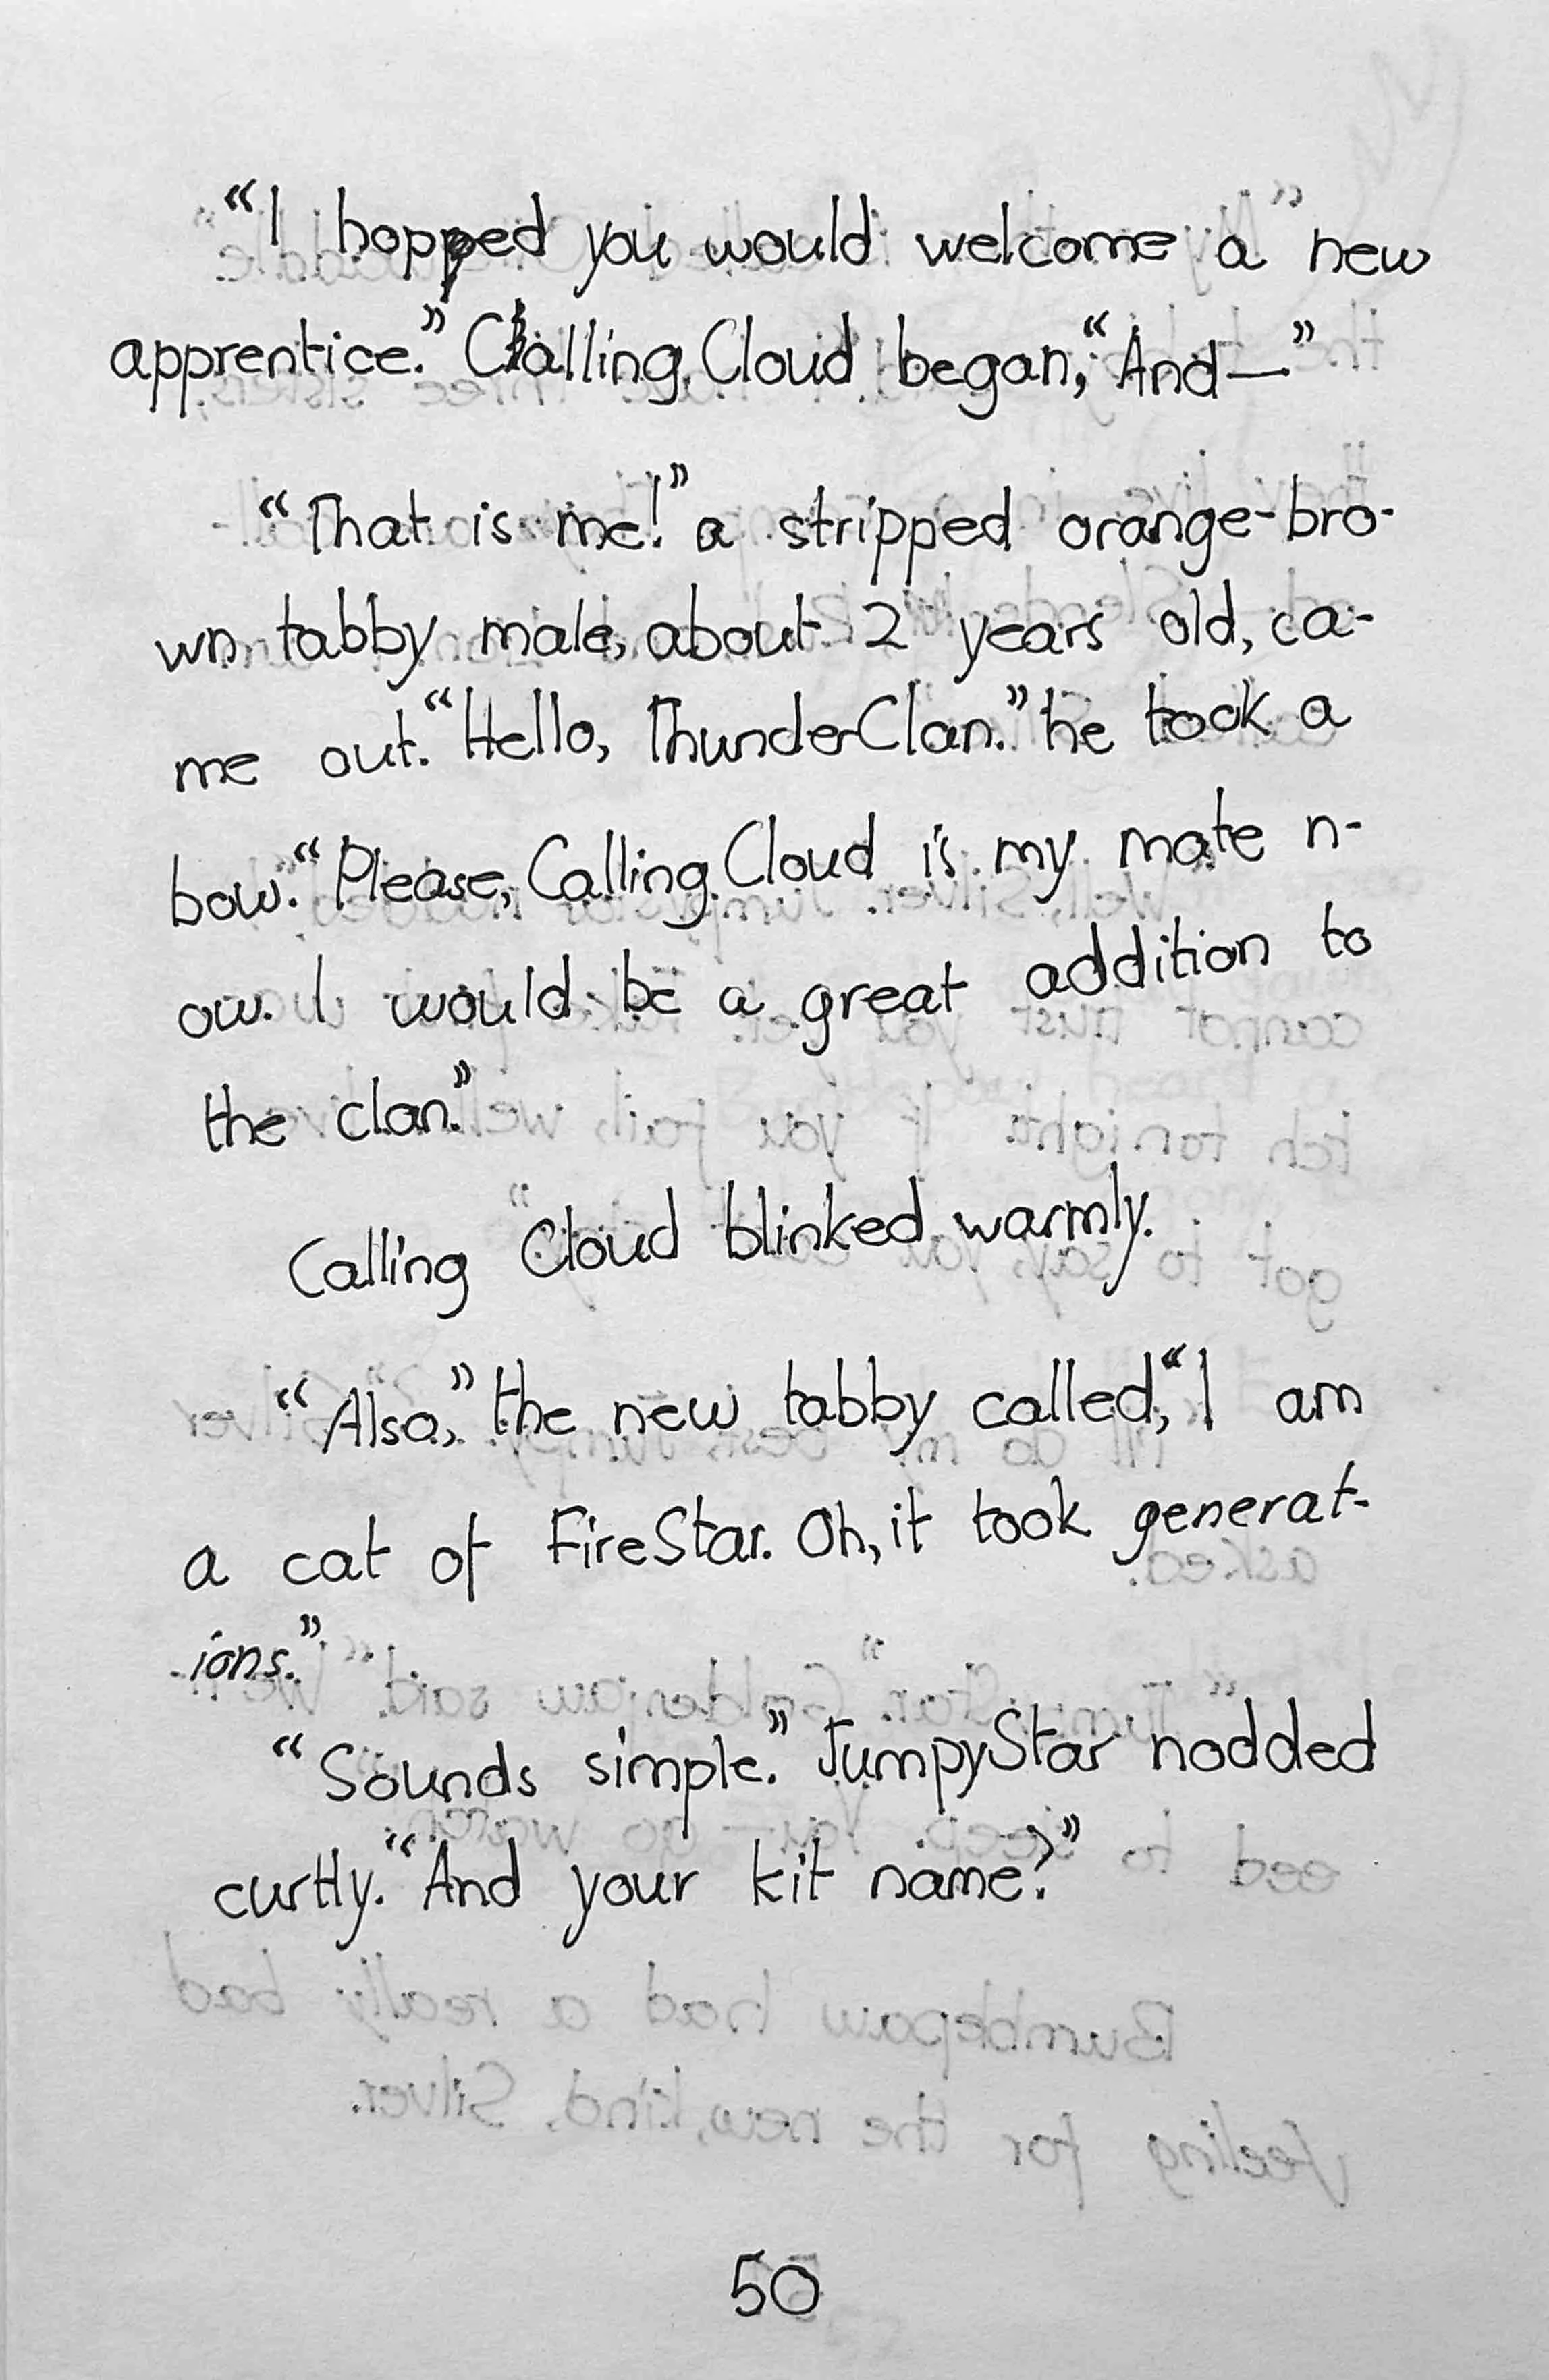 “I hopped you would welcome a new
apprentice.” Calling Cloud began, “And—”
“That is me!” a stripped orange-bro-
wn tabby male, about 2 years old, ca-
me out. “Hello, ThunderClan.” he took a
bow. “Please, Calling Cloud is my mate n-
ow. I would be a great addition to
the clan.”
Calling Cloud blinked warmly.
“Also,” the new tabby called, “I am
a cat of FireStar. Oh, it took generat-
ions.”
“Sounds simple.” JumpyStar nodded
curtly. “And your kit name?”
50